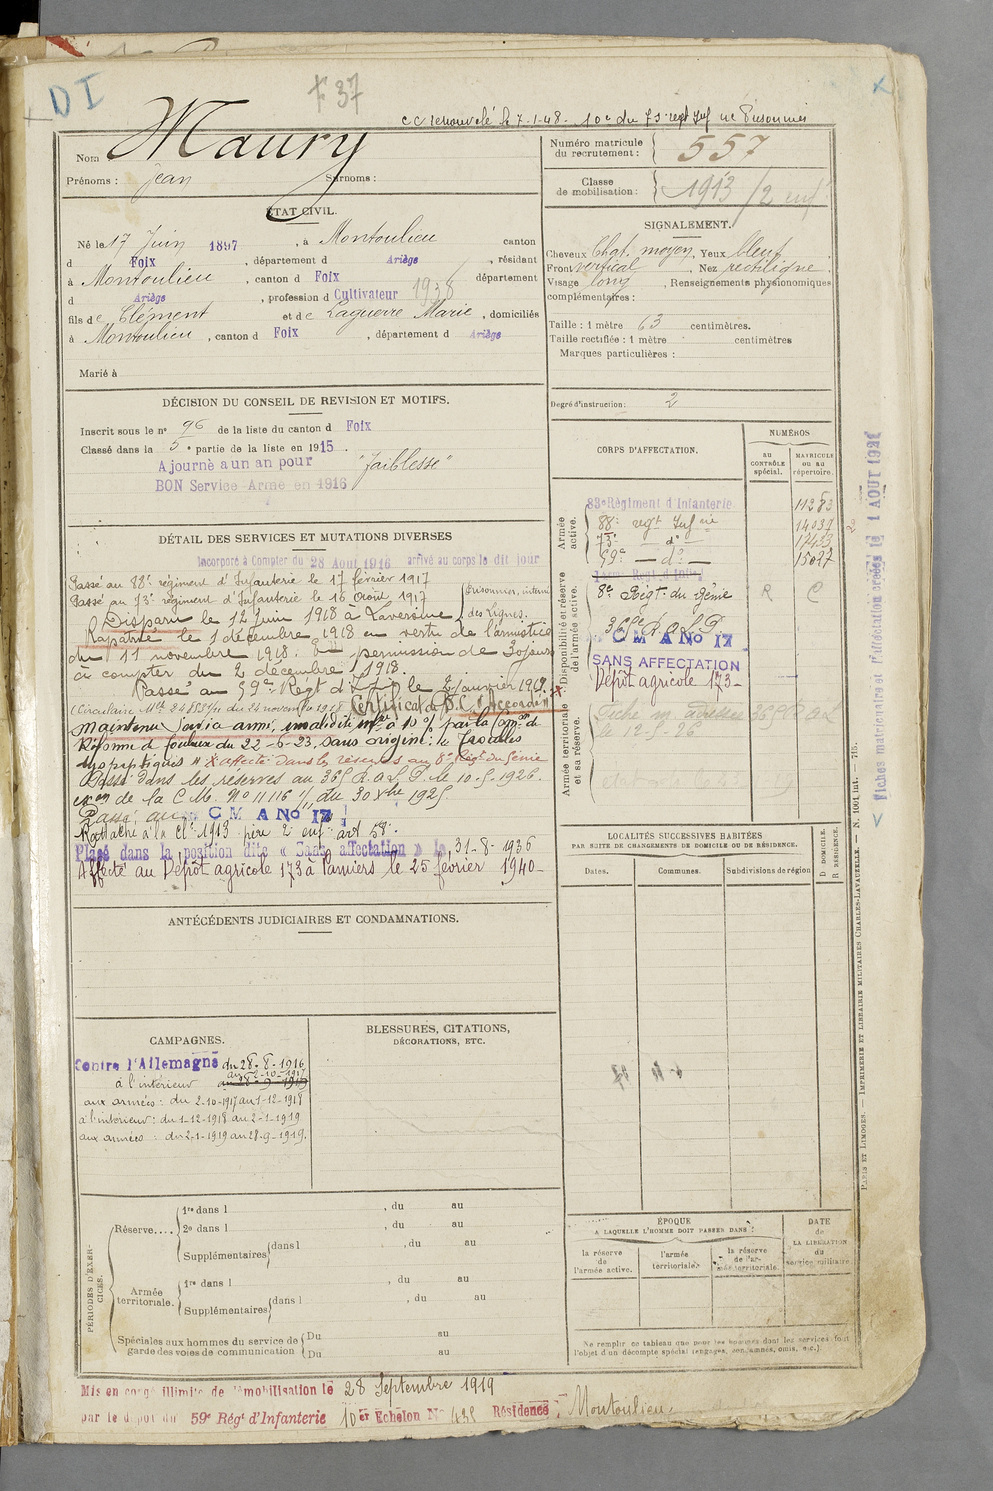 DI
F 37
CC renouvelé le 7-1-48- 10e du 73e regt Inf
Nom : Maury
Prénoms : Jean Surnoms :
Numéro matricule du recrutement : 557
Classe de mobilisation : 1913 / 2 enf
ÉTAT CIVIL.
Né le 17 Juin 1897, à Montoulieu canton
d Foix, département d Ariège, résidant
à Montoulieu, canton d Foix département
d Ariège, profession d Cultivateur 1938
fils de Clément et de Laguerre Marie, domiciliés
à Montoulieu, canton d Foix, département d Ariège
Marié à
SIGNALEMENT.
Cheveux Chat. moyen, Yeux bleus,
Front vertical, Nez rectiligne,
Visage long, Renseignements physionomiques
complémentaires :
Taille : 1 mètre 63 centimètres.
Taille rectifiée : 1 mètre centimètres
Marques particulières :
Degré d'instruction : 2
DÉCISION DU CONSEIL DE REVISION ET MOTIFS.
Inscrit sous le n° 96 de la liste du canton d Foix
Classé dans la 5e partie de la liste en 1915.
Ajourné a un an pour "faiblesse"
BON Service Armé en 1916
DÉTAIL DES SERVICES ET MUTATIONS DIVERSES
Incorporé à Compter du 28 Aout 1916 arrivé au corps le dit jour
Passé au 88e régiment d'Infanterie le 17 février 1917
Passé au 73e régiment d'Infanterie le 16 Août 1917
Disparu le 12 juin 1918 à Laversine (Prisonnier, interné des Lignes.
Rapatrié le 1 décembre 1918 en vertu de l'armistice
du 11 novembre 1918. permission de 30 jours
à compter du 2 décembre 1918.
Passé au 59e Regt d'Inf le 2 janvier 1919.
(Circulaire Mlle 24855/11 du 24 novembre 1918 Certificat de B.C. "Accordé"
Maintenu service armé, invalidité infre à 10 % par la Comon de
Réforme de Toulouse du 22-6-23, sans origine: 1e Troubles
dyspeptiques" affecté dans les réserves au 8e Régt du Génie
Passé dans les réserves au 365 R.A.L.P. le 10-5-1926.
exon de la C.M. No 11116 1/11 du 30 Xbre 1925
Passé au C M A No 17
Rattaché à la cl. 1913 père 2 enf. art 58.
Placé dans la position dite « Sans affectation » le 31-8-1936
Affecté au Dépôt agricole 173 à Pamiers le 25 février 1940-
CORPS D'AFFECTATION.
NUMÉROS
AU CONTRÔLE spécial.
MATRICULE ou au répertoire.
Armée active.
83e Régiment d'Infanterie 11283
88e regt Infrie 14037
73e — do — 17433
59e — do 15027
Disponibilité et réserve de l'armée active.
8e Régt du Génie R C
365e R.A.L.P.
C M A No 17
SANS AFFECTATION
Dépôt agricole 173-
Armée territoriale et sa réserve.
Fiche m adressée 365 R A L
le 12-5-26
LOCALITÉS SUCCESSIVES HABITÉES
PAR SUITE DE CHANGEMENTS DE DOMICILE OU DE RÉSIDENCE.
Dates. Communes. Subdivisions de région D DOMICILE. R RÉSIDENCE.
ANTÉCÉDENTS JUDICIAIRES ET CONDAMNATIONS.
CAMPAGNES.
Contre l'Allemagne du 28-8-1916
au 2-10-1917
à l'intérieur au 28-9-1919
aux armées : du 2-10-1917 au 1-12-1918
à l'intérieur : du 1-12-1918 au 2-1-1919
aux armées : du 2-1-1919 au 28-9-1919.
BLESSURES, CITATIONS,
DÉCORATIONS, ETC.
PÉRIODES D'EXERCICES.
Réserve....
1re dans l , du au
2e dans l , du au
Supplémentaires dans l , du au
Armée territoriale.
1re dans l , du au
Supplémentaires dans l , du au
Spéciales aux hommes du service de garde des voies de communication
Du au
Du au
ÉPOQUE
A LAQUELLE L'HOMME DOIT PASSER DANS :
la réserve de l'armée active.
l'armée territoriale.
la réserve de l'armée territoriale.
DATE de LA LIBÉRATION du service militaire.
Ne remplir ce tableau que pour les hommes dont les services font
l'objet d'un décompte spécial (engagés, condamnés, omis, etc.).
Mis en congé illimité de démobilisation le 28 Septembre 1919
par le dépot du 59e Régt d'Infanterie 10er Echelon No 435 Résidence : Montoulieu.
Fiches matriculaires et d'affectation créées le 1 AOUT 1921
PARIS ET LIMOGES. — IMPRIMERIE ET LIBRAIRIE MILITAIRES CHARLES-LAVAUZELLE. — N. 1001 int. — 715.